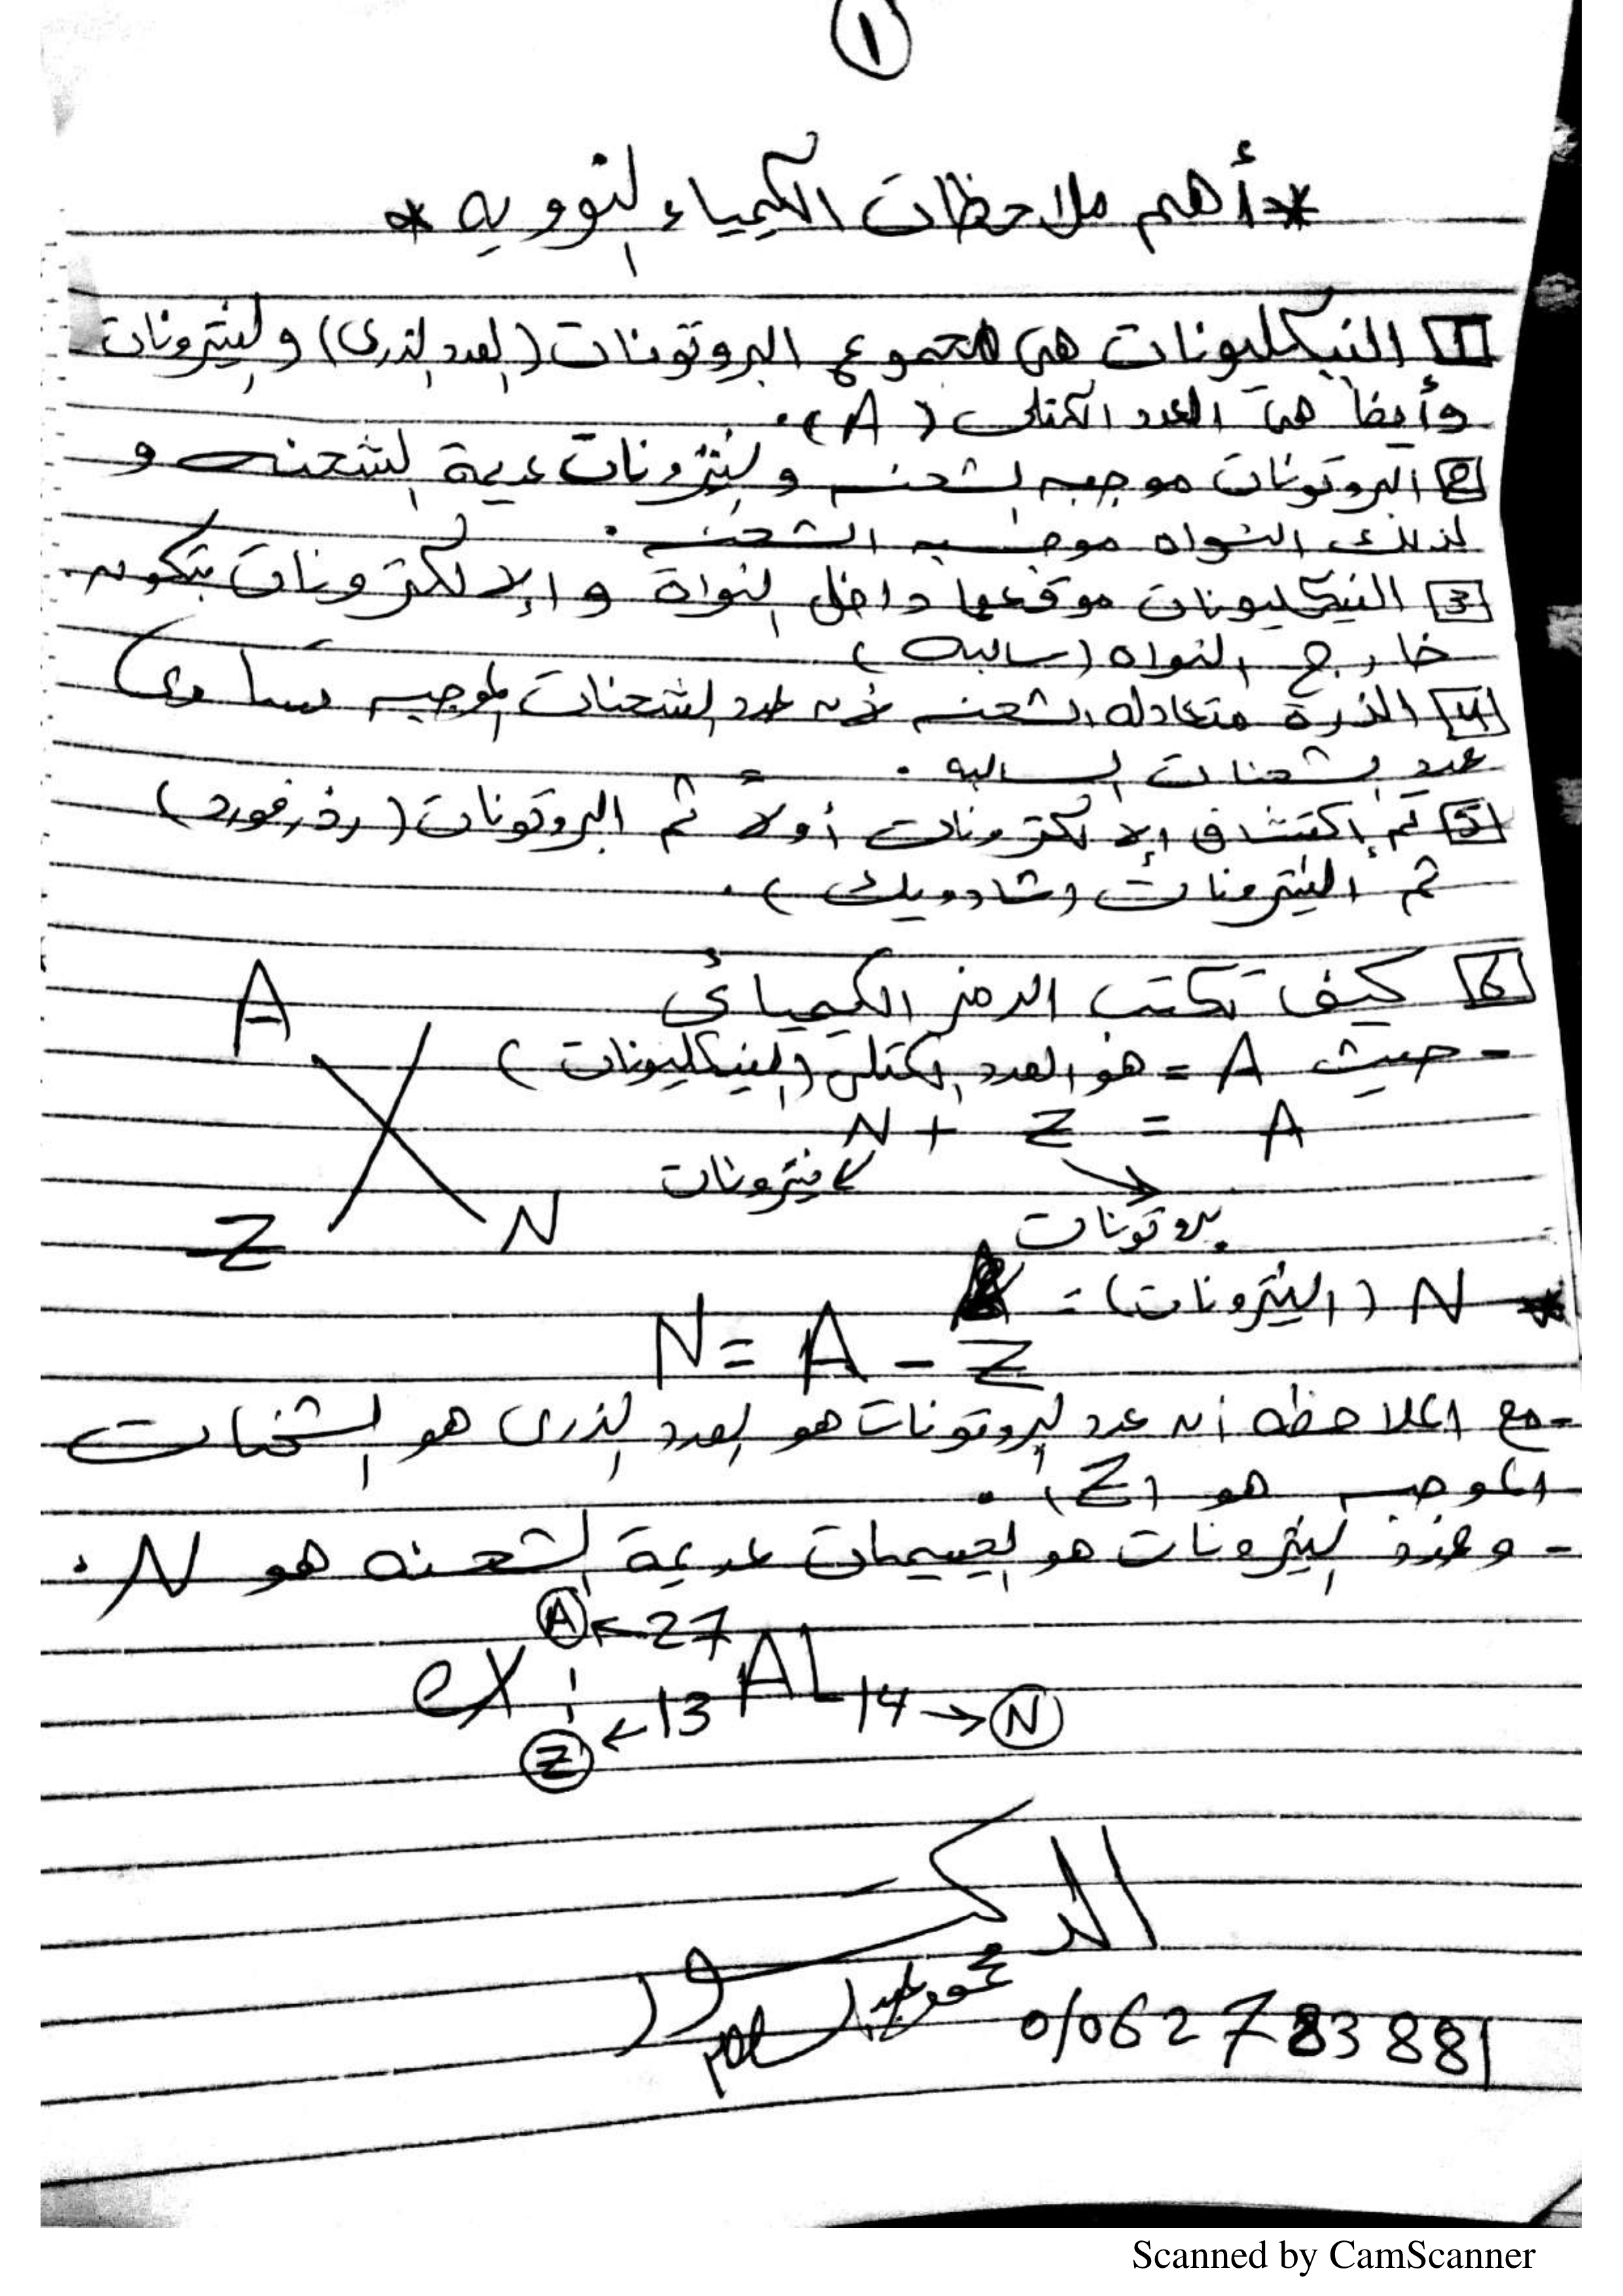 ١
* أهم ملاحظات الكيمياء النوويه *
1 النيكليونات هى مجموع البروتونات (العدد الذرى) والنيترونات
وأيضا هى العدد الكتلى (A).
2 البروتونات موجبه الشحنه والنيترونات عديمة الشحنه و
لذلك النواه موجبه الشحنه.
3 النيكليونات موقعها داخل النواة والإلكترونات بتكون
خارج النواه (سالبه)
4 الذرة متعادله الشحنه لأن عدد الشحنات الموجبه تساوى
عدد الشحنات السالبه.
5 تم إكتشاف الإلكترونات أولاً ثم البروتونات (رذرفورد)
ثم النيترونات (شادويك).
6 كيف تكتب الرمز الكيميائى
A
- حيث A = هو العدد الكتلى (النيكليونات)
X
N + Z = A
نيترونات
بروتونات
Z N
* N (النيترونات) =
N = A - Z
- مع الملاحظه أن عدد البروتونات هو العدد الذرى هو الشحنات
الموجبه هو (Z).
- وعدد النيترونات هو الجسيمات عديمة الشحنه هو N.
A ← 27
ex: AL
Z ← 13 14 → N
الدكتور
محمود عبد السلام
01062783881
Scanned by CamScanner